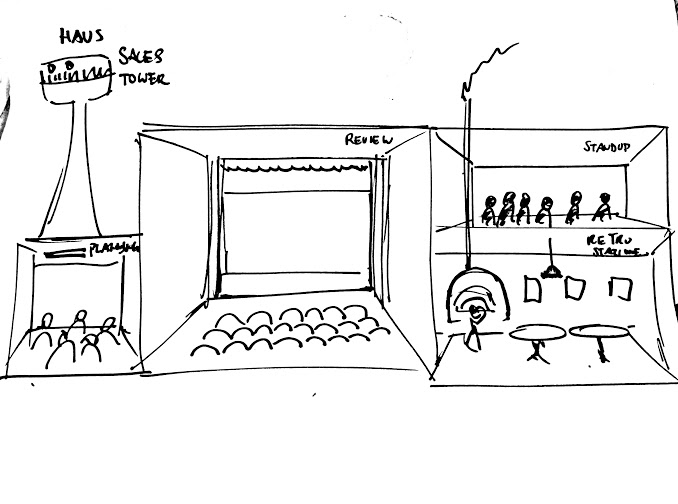 HAUS
SALES
TOWER
PLANNING
REVIEW
STANDUP
RETRO